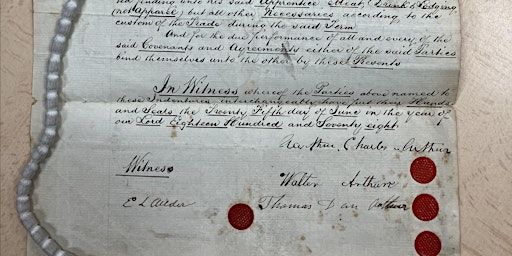 finding unto his said Apprentice Meat Drink & Lodging
Apparel; but all other Necessaries according to the
custom of the Trade during the said Term.
And for the due performance of all and every of the
said Covenants and Agreements either of the said Parties
bind themselves unto the other by these Presents
In Witness whereof the Parties above named to
these Indentures interchangeably have put their Hands
and Seals the Twenty Fifth day of June in the year of
our Lord Eighteen Hundred and Seventy eight.
Arthur Charles Arthur
Witness
Walter Arthur
E L
Thomas Dan Arthur